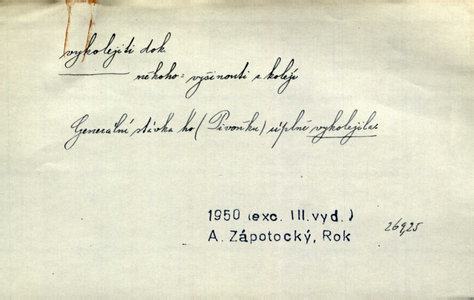 vykolejiti dok.
někoho = vyšinouti z kolejí
Generální stávka ho (Pivoňku) úplně vykolejila.
1950 (exc. III.vyd.)
A. Zápotocký, Rok
269,25